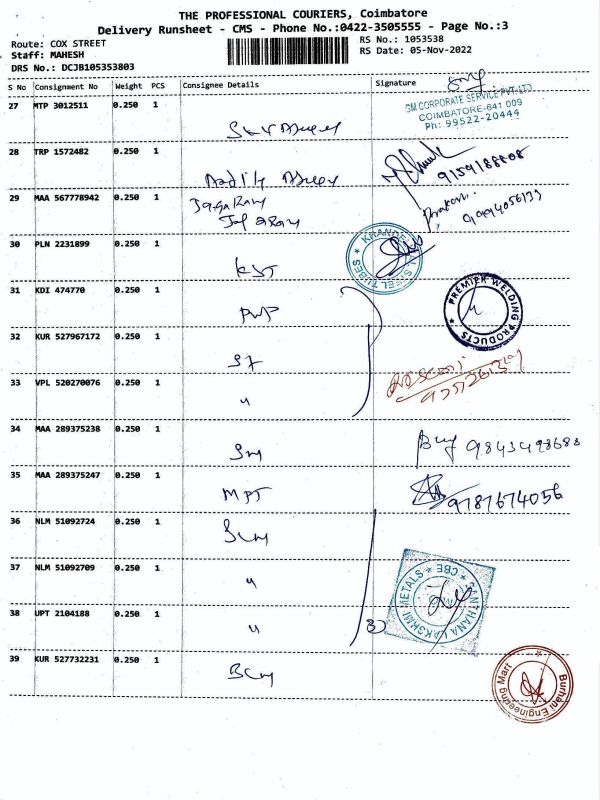 THE PROFESSIONAL COURIERS, Coimbatore
Delivery Runsheet - CMS - Phone No.:0422-3505555 - Page No.:3
Route: COX STREET
RS No.: 1053538
Staff: MAHESH
RS Date: 05-Nov-2022
DRS No.: DCJB105353803
S No Consignment No Weight PCS Consignee Details Signature
27 MTP 3012511 0.250 1
GM CORPORATE SERVICE PVT.LTD
COIMBATORE-641 009
Ph: 99522-20444
28 TRP 1572482 0.250 1
9159188808
29 MAA 567778942 0.250 1
30 PLN 2231899 0.250 1 KST
STEEL TUBES
31 KDI 474770 0.250 1 PWP
PREMIER WELDING PRODUCTS
32 KUR 527967172 0.250 1
33 VPL 520270076 0.250 1 "
34 MAA 289375238 0.250 1 9843498688
35 MAA 289375247 0.250 1 MPT 9787674056
36 NLM 51092724 0.250 1
37 NLM 51092709 0.250 1 "
SANTHANA LAKSHMI METALS CBE
38 UPT 2104188 0.250 1 "
39 KUR 527732231 0.250 1
Burhani Engineering Mart